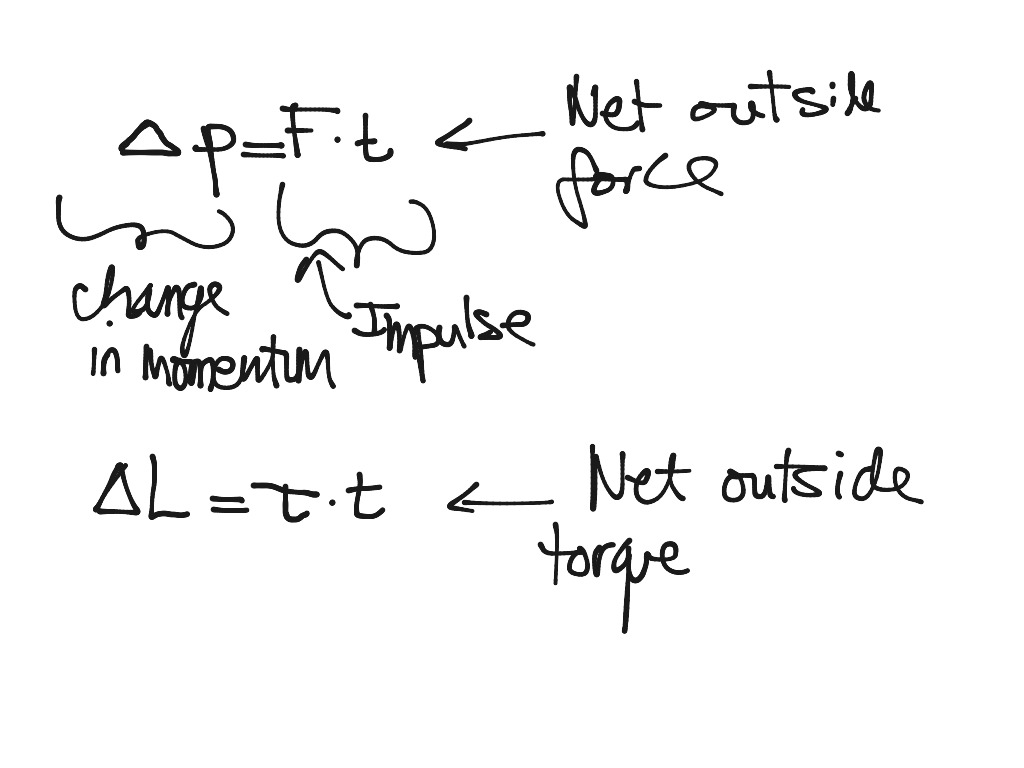 Δp = F · t ← Net outside
force
change
in momentum
Impulse
ΔL = τ · t ← Net outside
torque